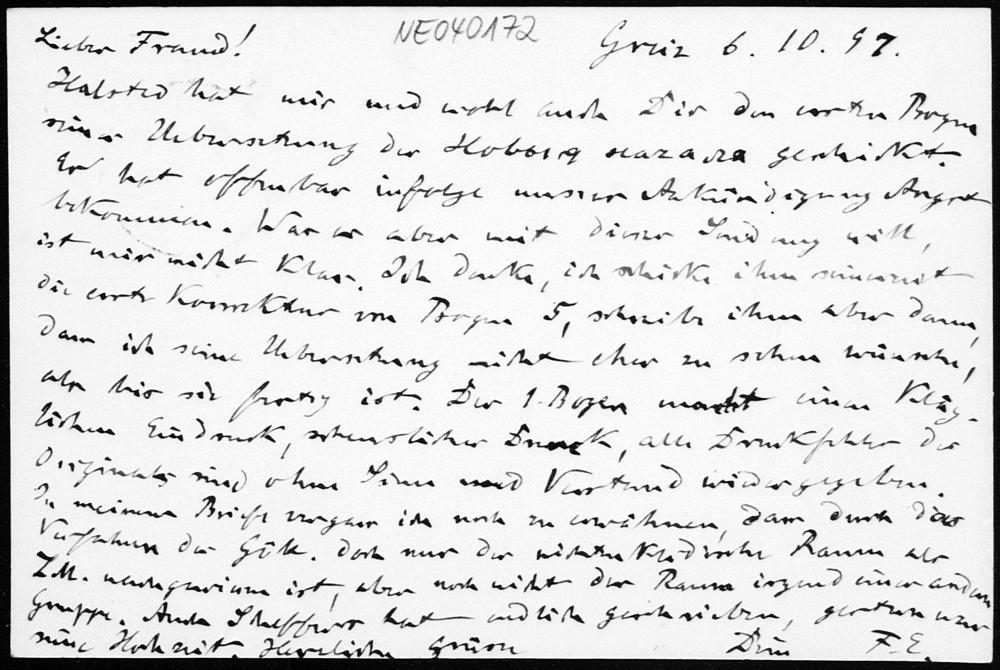 NE040172
Lieber Freund! Greiz 6. 10. 97.
Halsted hat mir und wohl auch Dir den ersten Bogen
seiner Uebersetzung der geschickt.
Er hat offenbar infolge unserer Ankündigung Angst
bekommen. Was er aber mit dieser Sendung will,
ist mir nicht klar. Ich denke, ich schicke ihm seinerzeit
die erste Korrektur von Bogen 5, schreibe ihm aber dann,
dass ich seine Uebersetzung nicht eher zu sehen wünsche,
als bis sie fertig ist. Der 1. Bogen macht einen kläg-
lichen Eindruck, scheusslicher Druck, alle Druckfehler des
Originals sind ohne Sinn und Verstand wiedergegeben.
In meinem Briefe vergass ich noch zu erwähnen, dass durch das
Verfahren der doch nur der nichteuklidische Raum als
Z.M. nachgewiesen ist, aber noch nicht der Raum irgend einer andern
Gruppe. Auch Scheffers hat endlich geschrieben, gestern war
seine Hochzeit. Herzliche Grüsse Dein F. E.